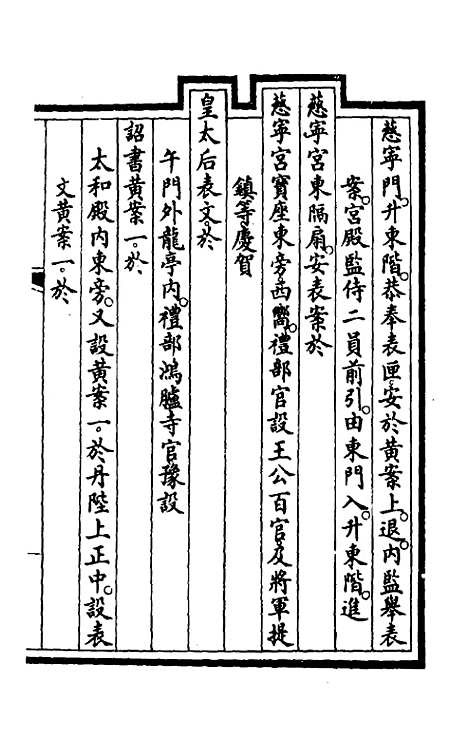 慈寧門。升東階。恭奉表匣。安於黃案上。退。內監舉表
案。宮殿監侍二員前引。由東門入。升東階。進
慈寧宮東隔扇。安表案於
慈寧宮寶座東旁。西嚮。禮部官設王公百官及將軍提
鎮等慶賀
皇太后表文。於
午門外龍亭內。禮部鴻臚寺官豫設
詔書黃案一。於
太和殿內東旁。又設黃案一。於丹陛上正中。設表
文黃案一。於